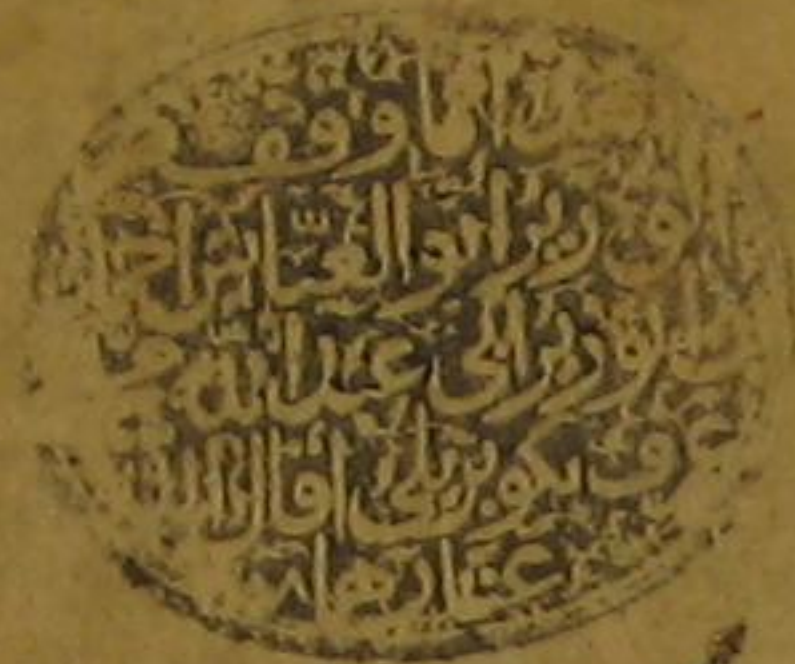 هذا ما وقف
الوزير ابو العباس احمد
بن الوزير ابى عبد الله محمد
عرف بكوبريلى اقال الله
عثارهما